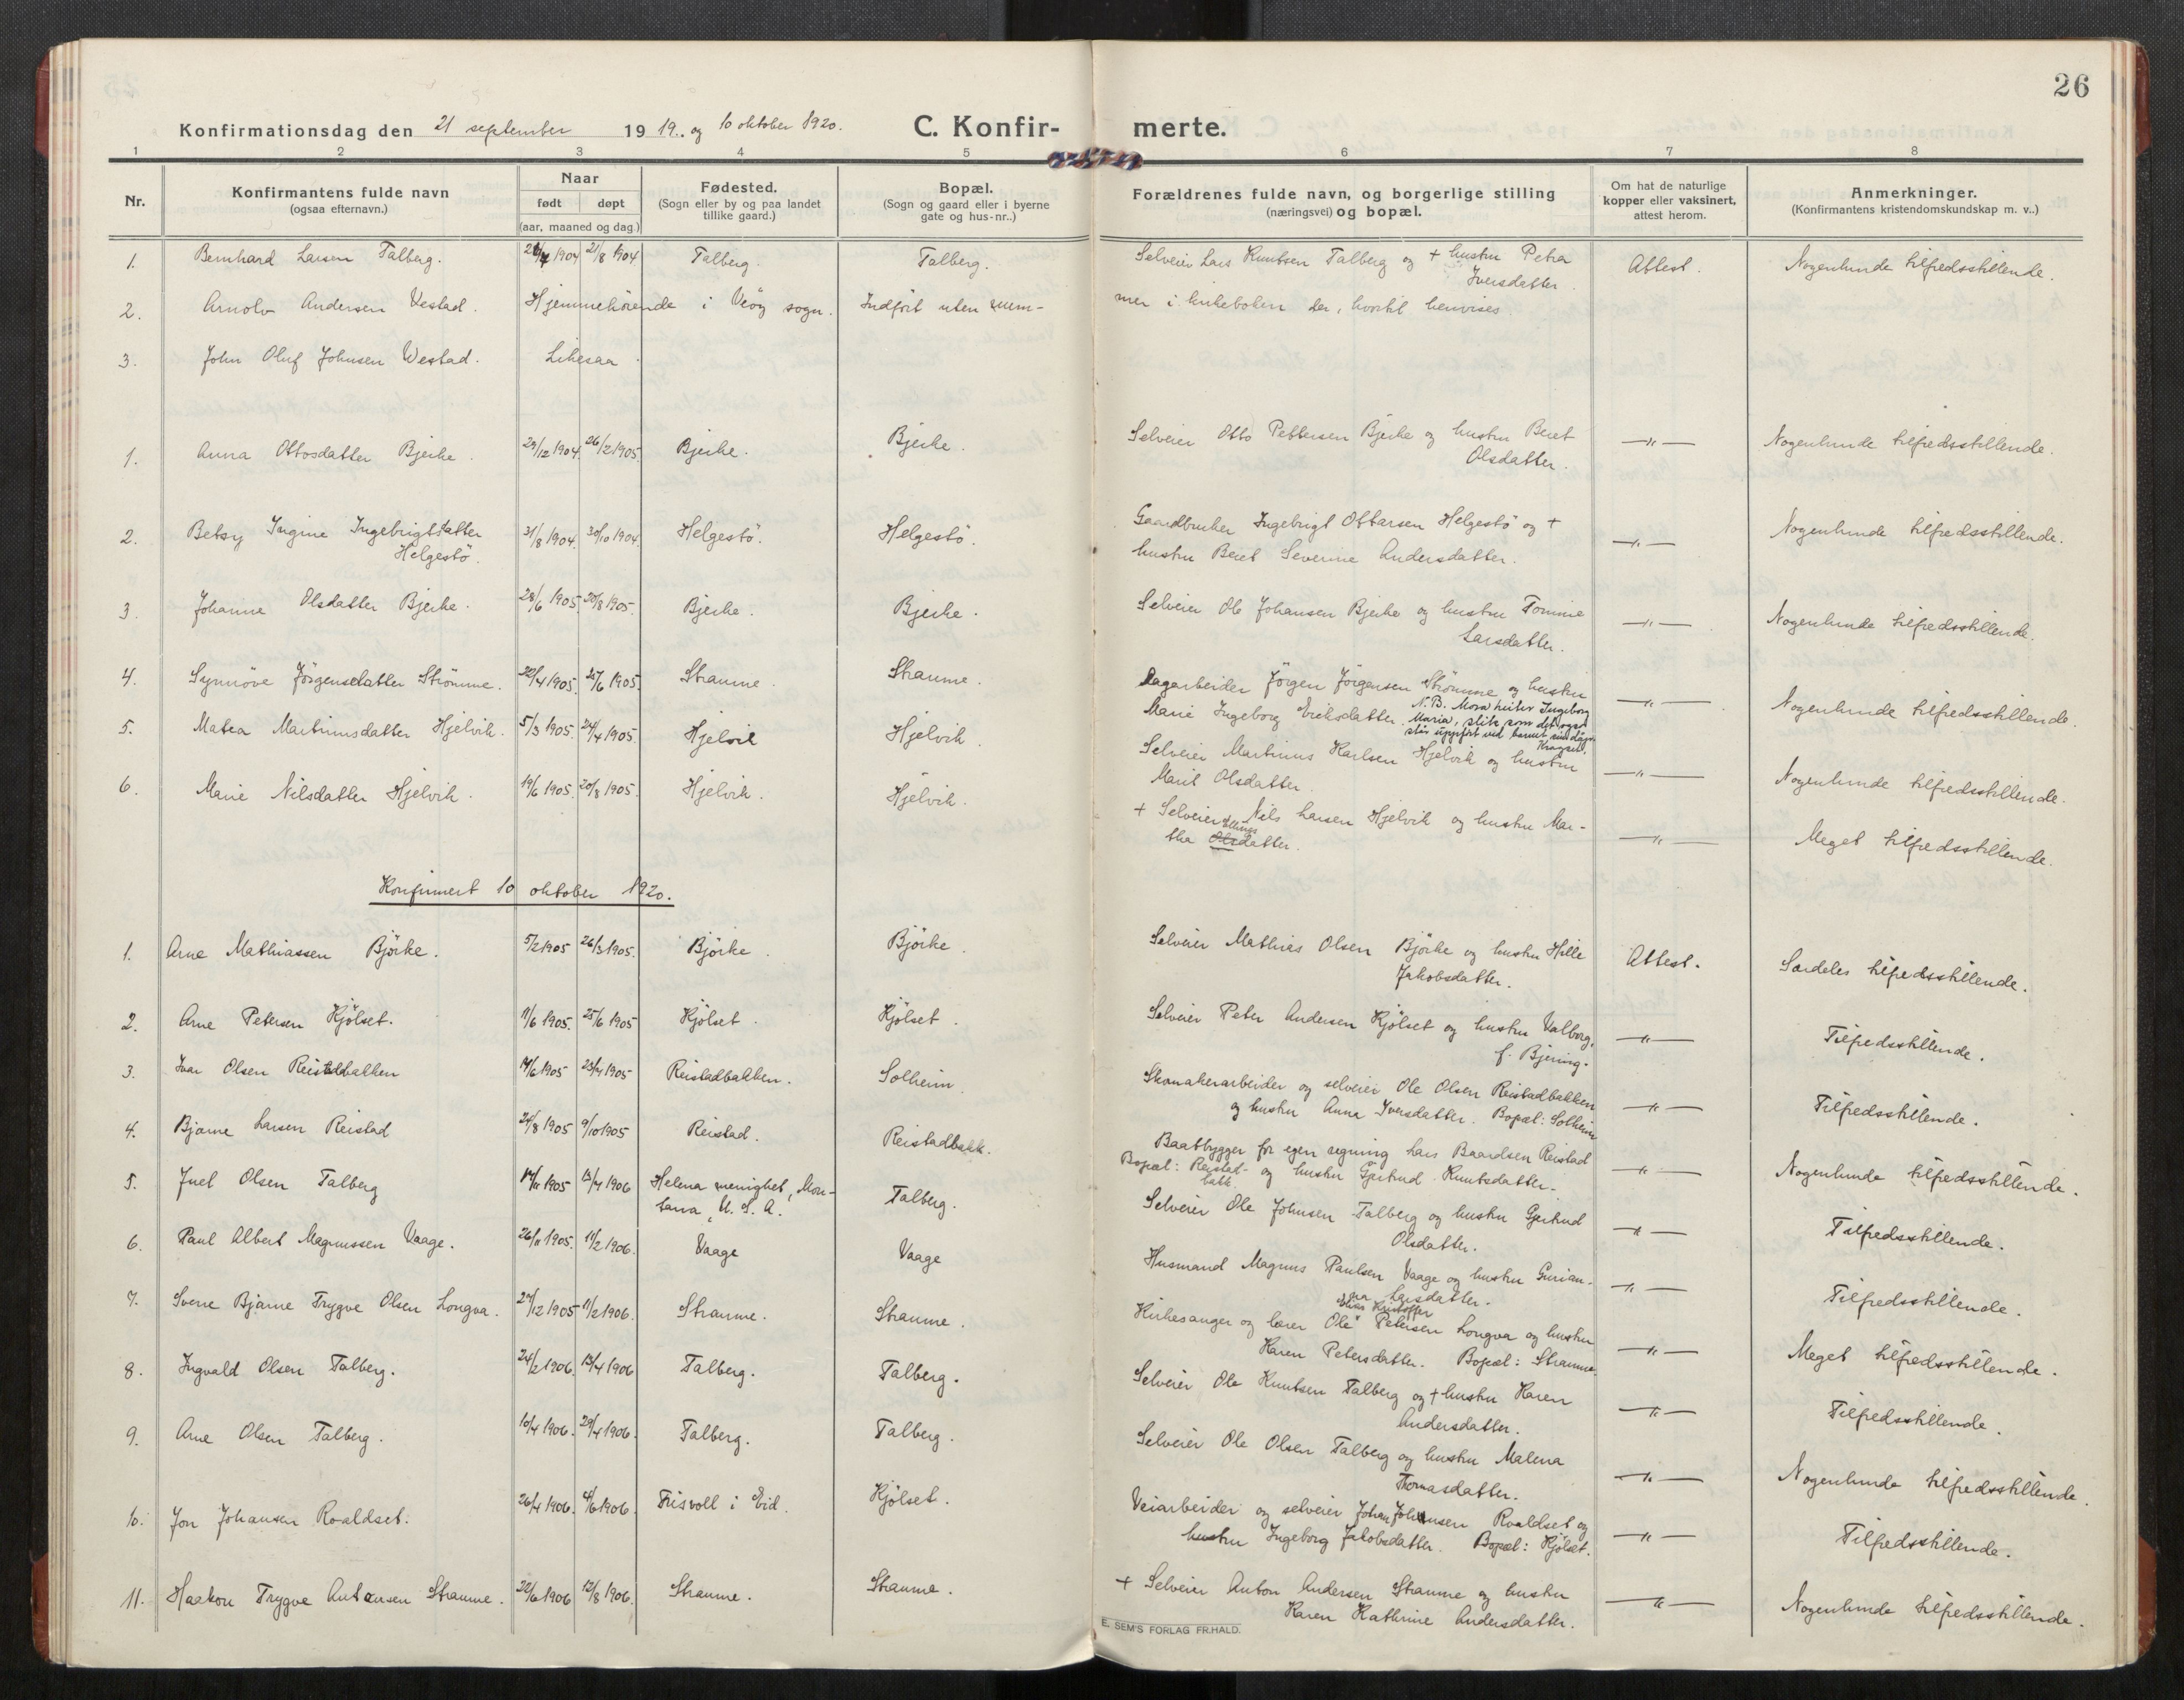 26
Konfirmationsdag den 21 september 1919. og 10 oktober 1920.
C. Konfirmerte.
1 2 3 4 5 6 7 8
Nr.
Konfirmantens fulde navn
(ogsaa efternavn.)
Naar
født døpt
(aar, maaned og dag.)
Fødested.
(Sogn eller by og paa landet
tillike gaard.)
Bopæl.
(Sogn og gaard eller i byerne
gate og hus-nr..)
Forældrenes fulde navn, og borgerlige stilling
(næringsvei) og bopæl.
Om hat de naturlige
kopper eller vaksinert,
attest herom.
Anmerkninger.
(Konfirmantens kristendomskundskap m. v..)
1. Bernhard Larsen Talberg. 1904 21/8 1904 Talberg. Talberg. Selveier Lars Knutsen Talberg og + hustru Petra
Iversdatter. Attest. Nogenlunde tilfredsstillende.
2. Arnolv Andersen Vestad. Hjemmehörende i Veöy sogn. Indfört uten num-
mer i kirkeboken der, hvortil henvises
3. John Oluf Johnsen Westad. Likesaa.
1. Anna Ottosdatter Bjerke. 29/12 1904. 26/2 1905. Bjerke. Bjerke. Selveier Otto Pettersen Bjerke og hustru Beret
Olsdatter. —"— Nogenlunde tilfredsstillende.
2. Betsy Ingine Ingebrigtsdatter
Helgestö. 31/8 1904. 30/10 1904. Helgestö. Helgestö. Gaardbruker Ingebrigt Ottarsen Helgestö og +
hustru Beret Severine Andersdatter. —"— Nogenlunde tilfredsstillende.
3. Johanne Olsdatter Bjerke. 28/6 1905. 20/8 1905. Bjerke. Bjerke. Selveier Ole Johansen Bjerke og hustru Tomine
Larsdatter. —"— Nogenlunde tilfredsstillende.
4. Synnöve Jörgensdatter Strömme. 22/4 1905. 25/6 1905. Straume. Straume. Dagarbeider Jörgen Jörgensen Strömme og hustru
Marie Ingeborg Eriksdatter. N.B. Mora heiter Ingeborg
Maria, slik som det også
står uppført ved barnet sin dåp.
—"— Nogenlunde tilfredsstillende.
5. Matea Martinusdatter Hjelvik. 5/3 1905. 24/4 1905. Hjelvik Hjelvik. Selveier Martinus Karlsen Hjelvik og hustru
Marit Olsdatter. —"— Nogenlunde tilfredsstillende.
6. Marie Nilsdatter Hjelvik. 19/6 1905. 20/8 1905. Hjelvik. Hjelvik. + Selveier Nils Larsen Hjelvik og hustru Mar-
tha Olsdatter. —"— Meget tilfredsstillende.
Konfirmert 10 oktober 1920.
1. Arne Mathiassen Björke. 5/2 1905 26/3 1905. Björke. Björke. Selveier Mathias Olsen Björke og hustru Hille
Jakobsdatter. Attest. Særdeles tilfredsstillende.
2. Arne Petersen Kjölset. 11/6 1905. 25/6 1905 Kjölset. Kjölset. Selveier Peter Andersen Kjölset og hustru Valborg,
f. Bjering. —"— Tilfredsstillende.
3. Ivar Olsen Reistadbakken 1905 23/4 1905 Reistadbakken. Solheim. Skomakerarbeider og selveier Ole Olsen Reistadbakken
og hustru Anna Iversdatter. Bopæl: Solheim —"— Tilfredsstillende.
4. Bjarne Larsen Reistad 24/8 1905 9/10 1905 Reistad. Reistadbakk. Baatbygger for egen regning Lars Baardsen Reistad
Bopæl: Reistad-
bakk. og hustru Gjertrud Knutsdatter. —"— Nogenlunde tilfredsstillende.
5. Juel Olsen Talberg 1905 13/4 1906 Helena menighet, Mon-
tana, U. S. A. Talberg. Selveier Ole Johnsen Talberg og hustru Gjertrud
Olsdatter. —"— Tilfredsstillende.
6. Paul Albert Magnussen Vaage. 26/11 1905. 11/2 1906. Vaage Vaage Husmand Magnus Paulsen Vaage og hustru Gurian-
na Larsdatter. —"— Tilfredsstillende.
7. Sverre Bjarne Trygve Olsen Longva. 27/12 1905 11/2 1906. Straume. Straume. Kirkesanger og lærer Ole Elias Kristoffer Petersen Longva og hustru
Karen Petersdatter. Bopæl: Straume. —"— Meget tilfredsstillende.
8. Ingvald Olsen Talberg. 24/2 1906. 13/4 1906 Talberg. Talberg. Selveier Ole Knutsen Talberg og + hustru Karen
Andersdatter. —"— Tilfredsstillende.
9. Arne Olsen Talberg. 10/4 1906. 29/4 1906. Talberg. Talberg. Selveier Ole Olsen Talberg og hustru Malena
Thomasdatter. —"— Nogenlunde tilfredsstillende.
10. Jon Johansen Roaldset. 26/4 1906. 4/6 1906. Frisvoll i Eid. Kjölset. Veiarbeider og selveier Johan Johansen Roaldset og
hustru Ingeborg Jakobsdatter. Bopæl: Kjölset. —"— Tilfredsstillende.
11. Haakon Trygve Antonsen Straume. 22/6 1906 12/8 1906. Straume. Straume. + Selveier Anton Andersen Straume og hustru
Karen Kathrine Andersdatter. —"— Nogenlunde tilfredsstillende.
E. SEM'S FORLAG FR.HALD.